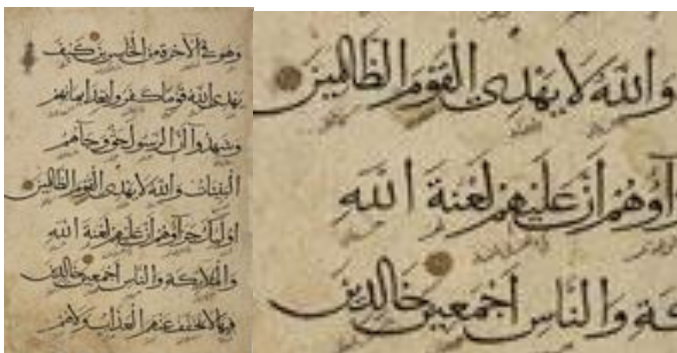 وهو في الآخرة من الخاسرين كيف
يهدي الله قوما كفروا بعد ايمانهم
وشهدوا أن الرسول حق وجاءهم
البينات والله لا يهدي القوم الظالمين
اولئك جزآؤهم أن عليهم لعنة الله
والملائكة والناس اجمعين خالدين
فيها لا يخفف عنهم العذاب ولا هم
وَاللهُ لَا يَهْدِي الْقَوْمَ الظَّالِمِينَ
آؤُهُمْ أَنَّ عَلَيْهِمْ لَعْنَةَ اللهِ
كَةِ وَالنَّاسِ اَجْمَعِينَ خَالِدِينَ